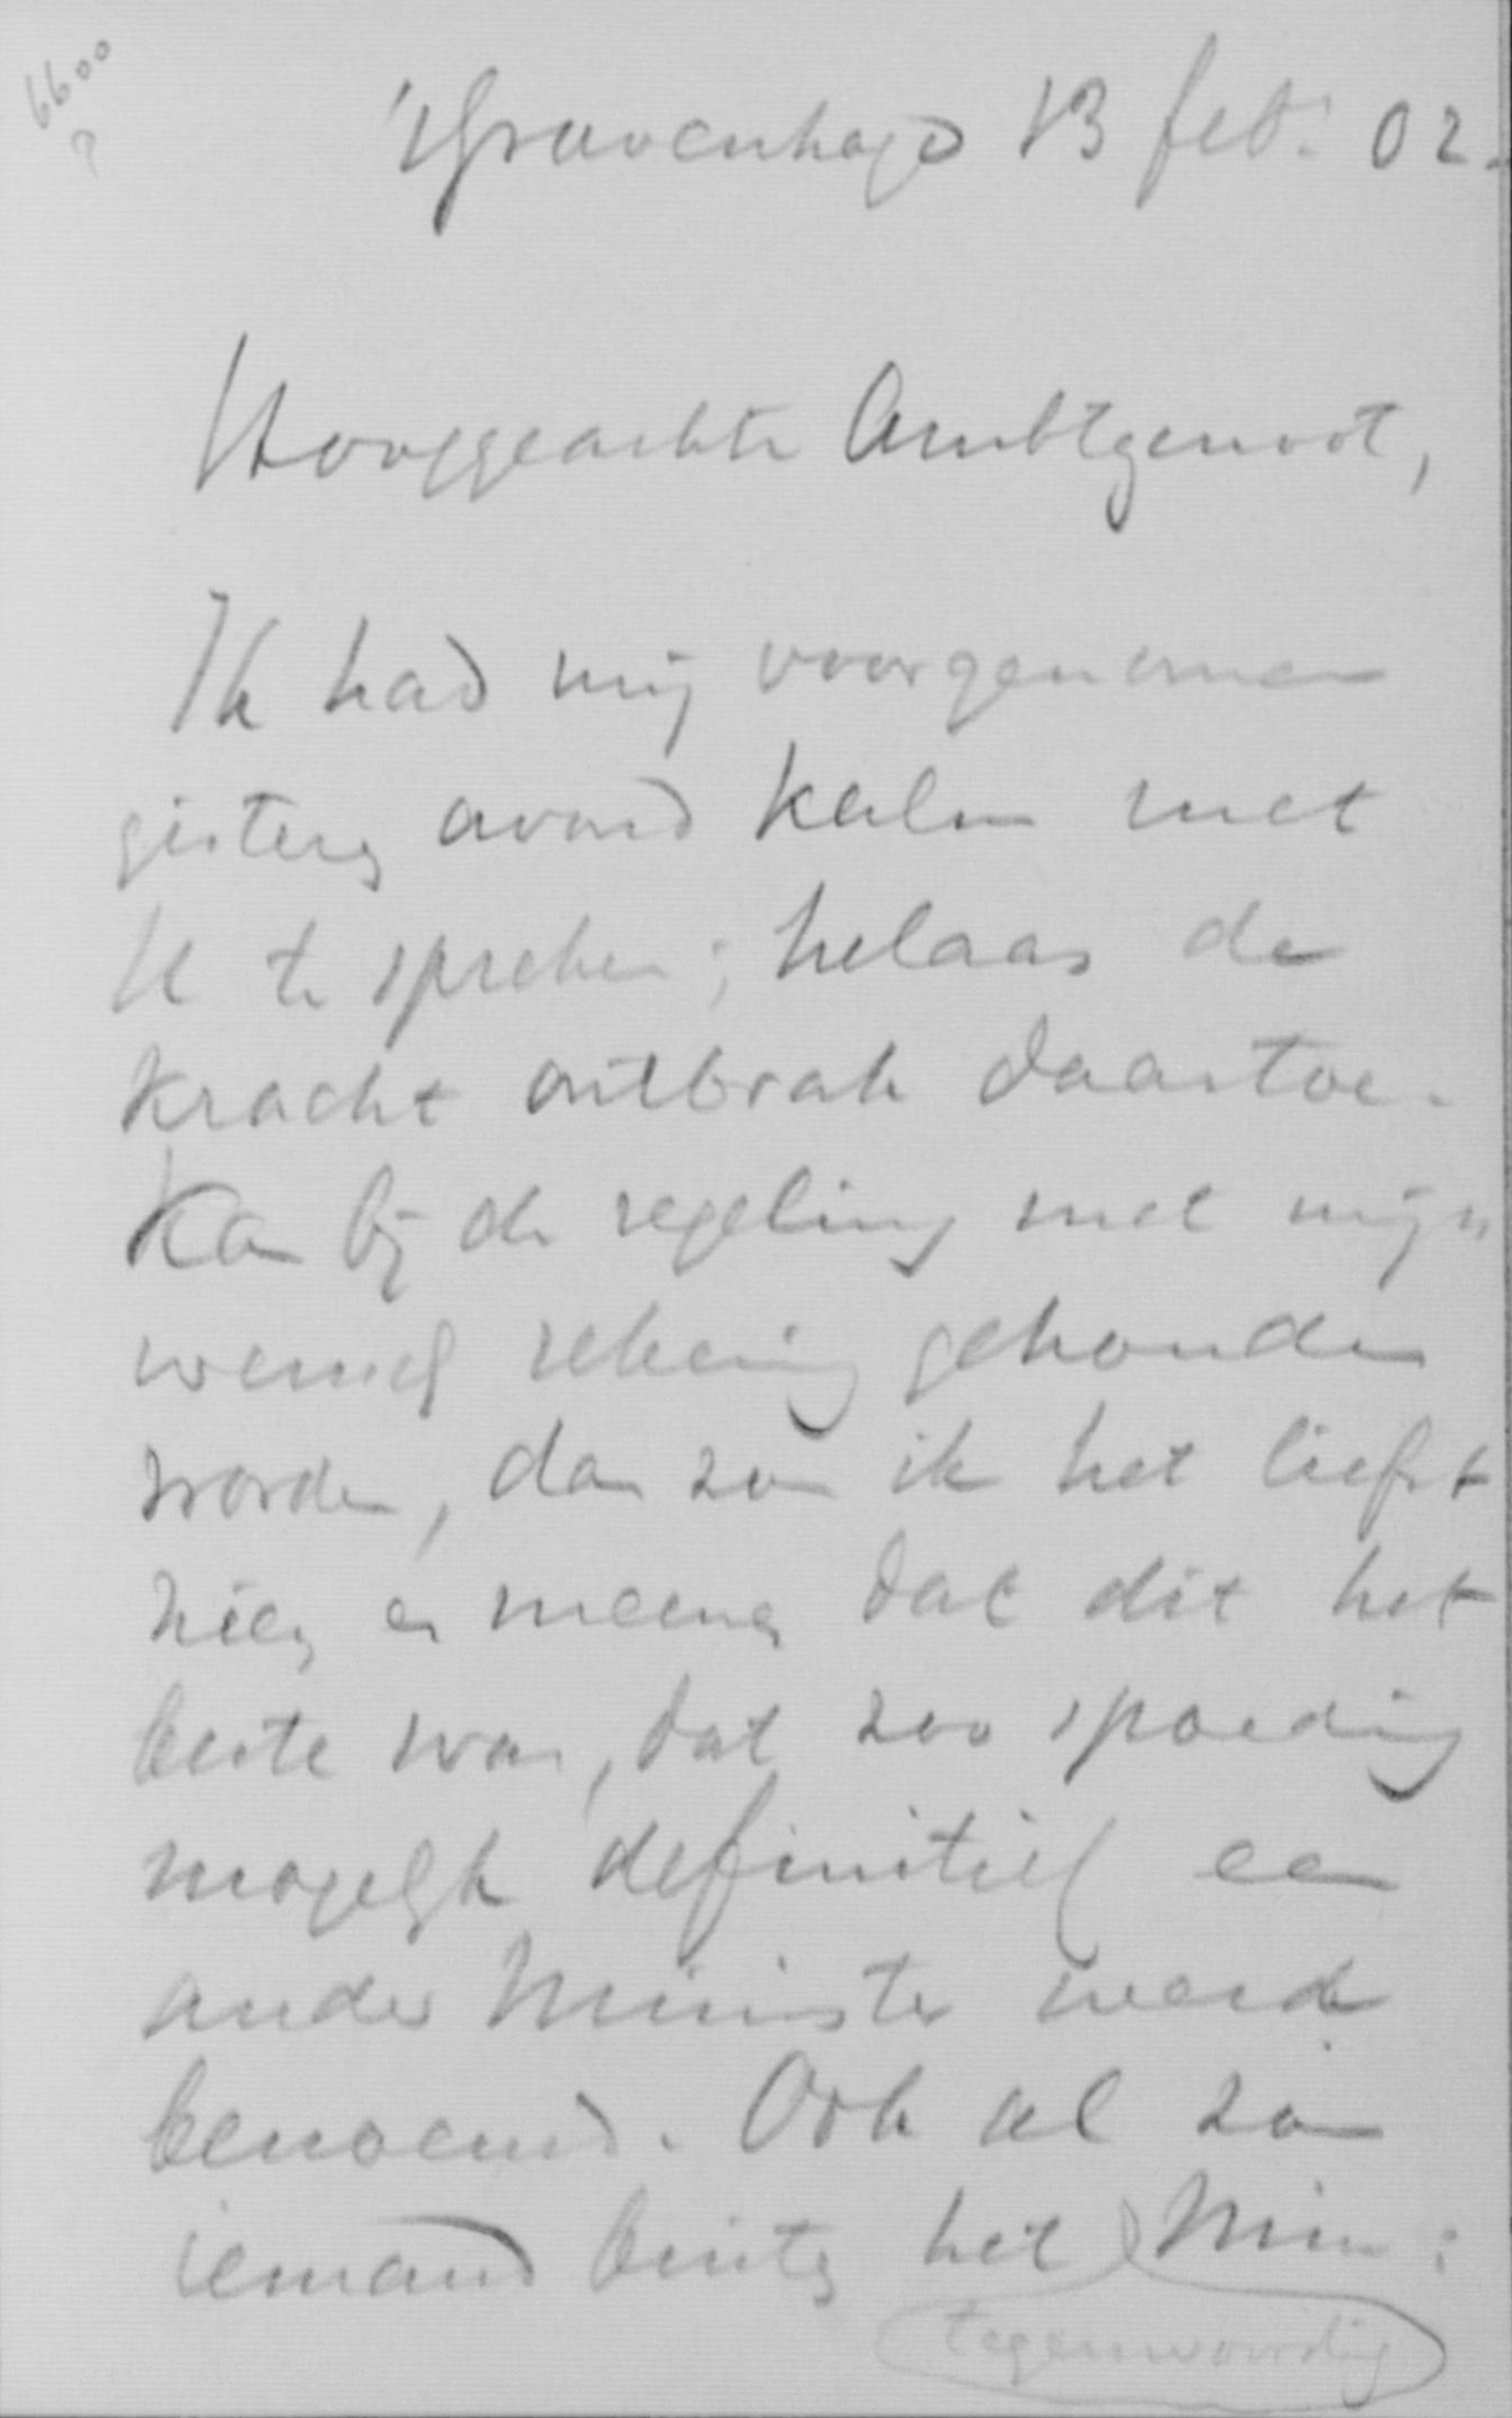 6600
?
'sGravenhage 13 feb: 02.
Hooggeachte Ambtgenoot,
Ik had mij voorgenomen
gisteren avond kalm met
U te spreken; helaas de
kracht ontbrak daartoe.
Kan bij de regeling met mijn
wensch rekening gehouden
worden, dan zou ik het liefst
zien en meenen dat dit het
beste was, dat zoo spoedig
mogelijk definitief een
ander Minister werd
benoemd. Ook al zou
iemand buiten het Min:
tegenwoordig